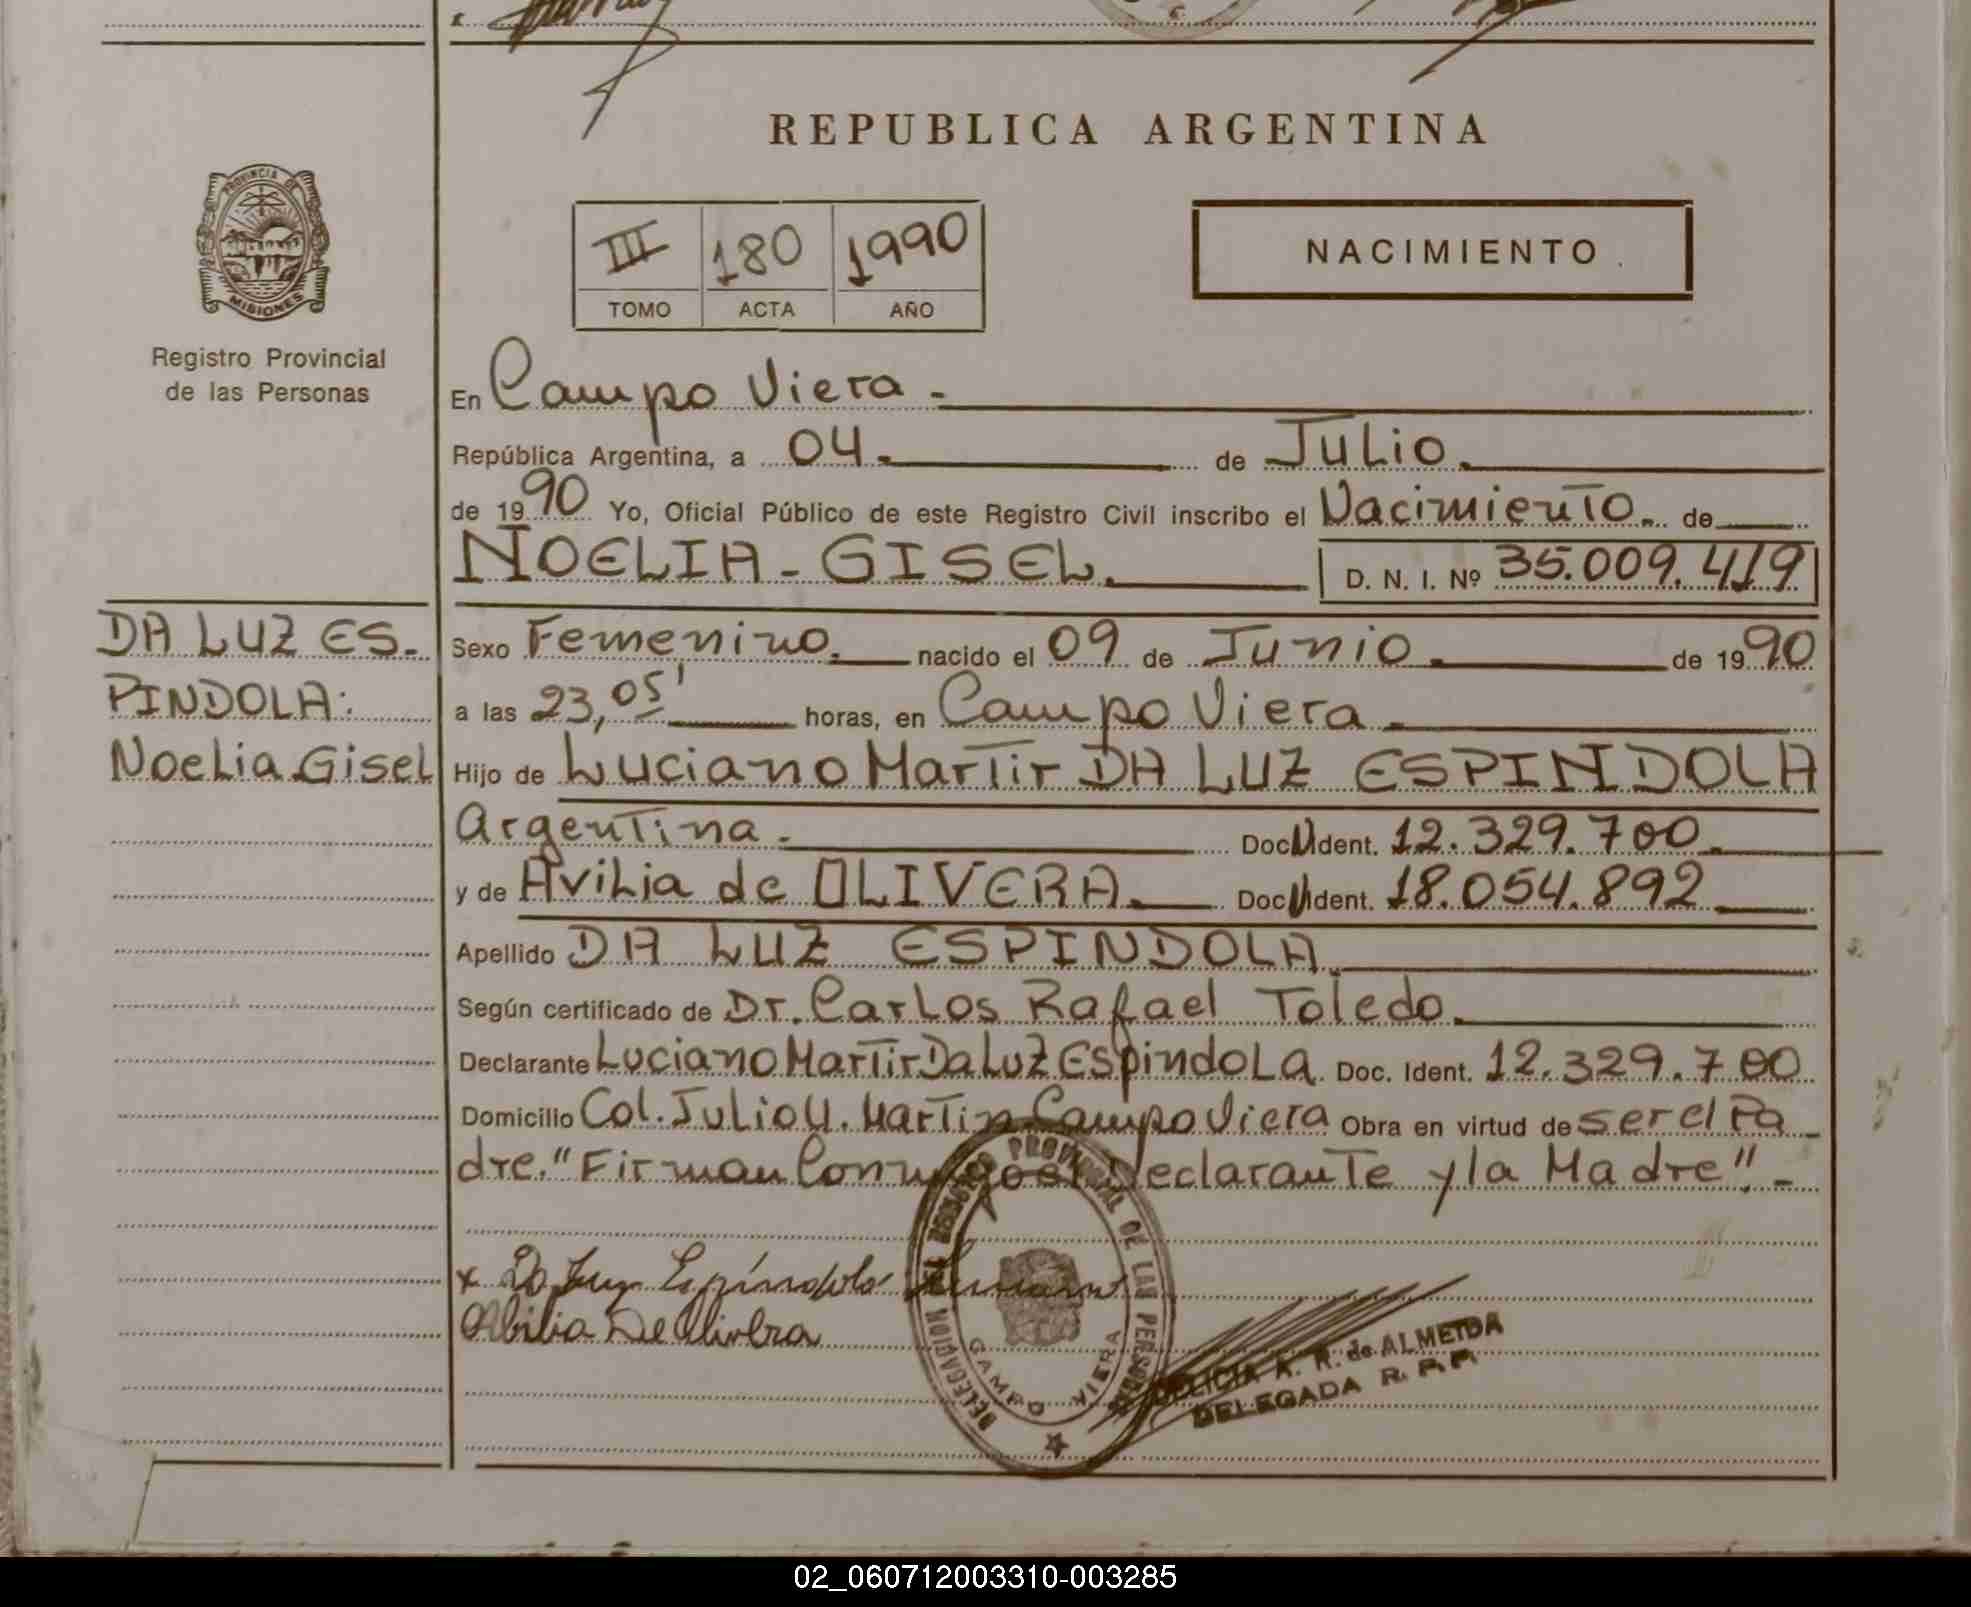 REPUBLICA ARGENTINA
PROVINCIA DE
MISIONES
Registro Provincial
de las Personas
III 180 1990
TOMO ACTA AÑO
NACIMIENTO
En Campo Viera.
República Argentina, a 04. de Julio.
de 1990 Yo, Oficial Público de este Registro Civil inscribo el Nacimiento. de
NOELIA - GISEL. D. N. I. Nº 35.009.419
DA LUZ ES-
PINDOLA:
Noelia Gisel
Sexo Femenino. nacido el 09 de Junio. de 1990
a las 23,05' horas, en Campo Viera.
Hijo de Luciano Martir DA LUZ ESPINDOLA
Argentina. Doc. Ident. 12.329.700.
y de Avilia de OLIVERA. Doc. Ident. 18.054.892
Apellido DA LUZ ESPINDOLA.
Según certificado de Dr. Carlos Rafael Toledo.
Declarante Luciano Martir Da Luz Espindola Doc. Ident. 12.329.700
Domicilio Col. Julio U. Martin Campo Viera Obra en virtud de ser el Pa-
dre. "Firman Conmigo el Declarante y la Madre". -
x Da Luz Espíndola Luciano
Abilia De Olivera
DELEGACION DEL REGISTRO PROVINCIAL DE LAS PERSONAS
CAMPO VIERA
DELICIA A. R. de ALMEIDA
DELEGADA R. P. P.
02_060712003310-003285